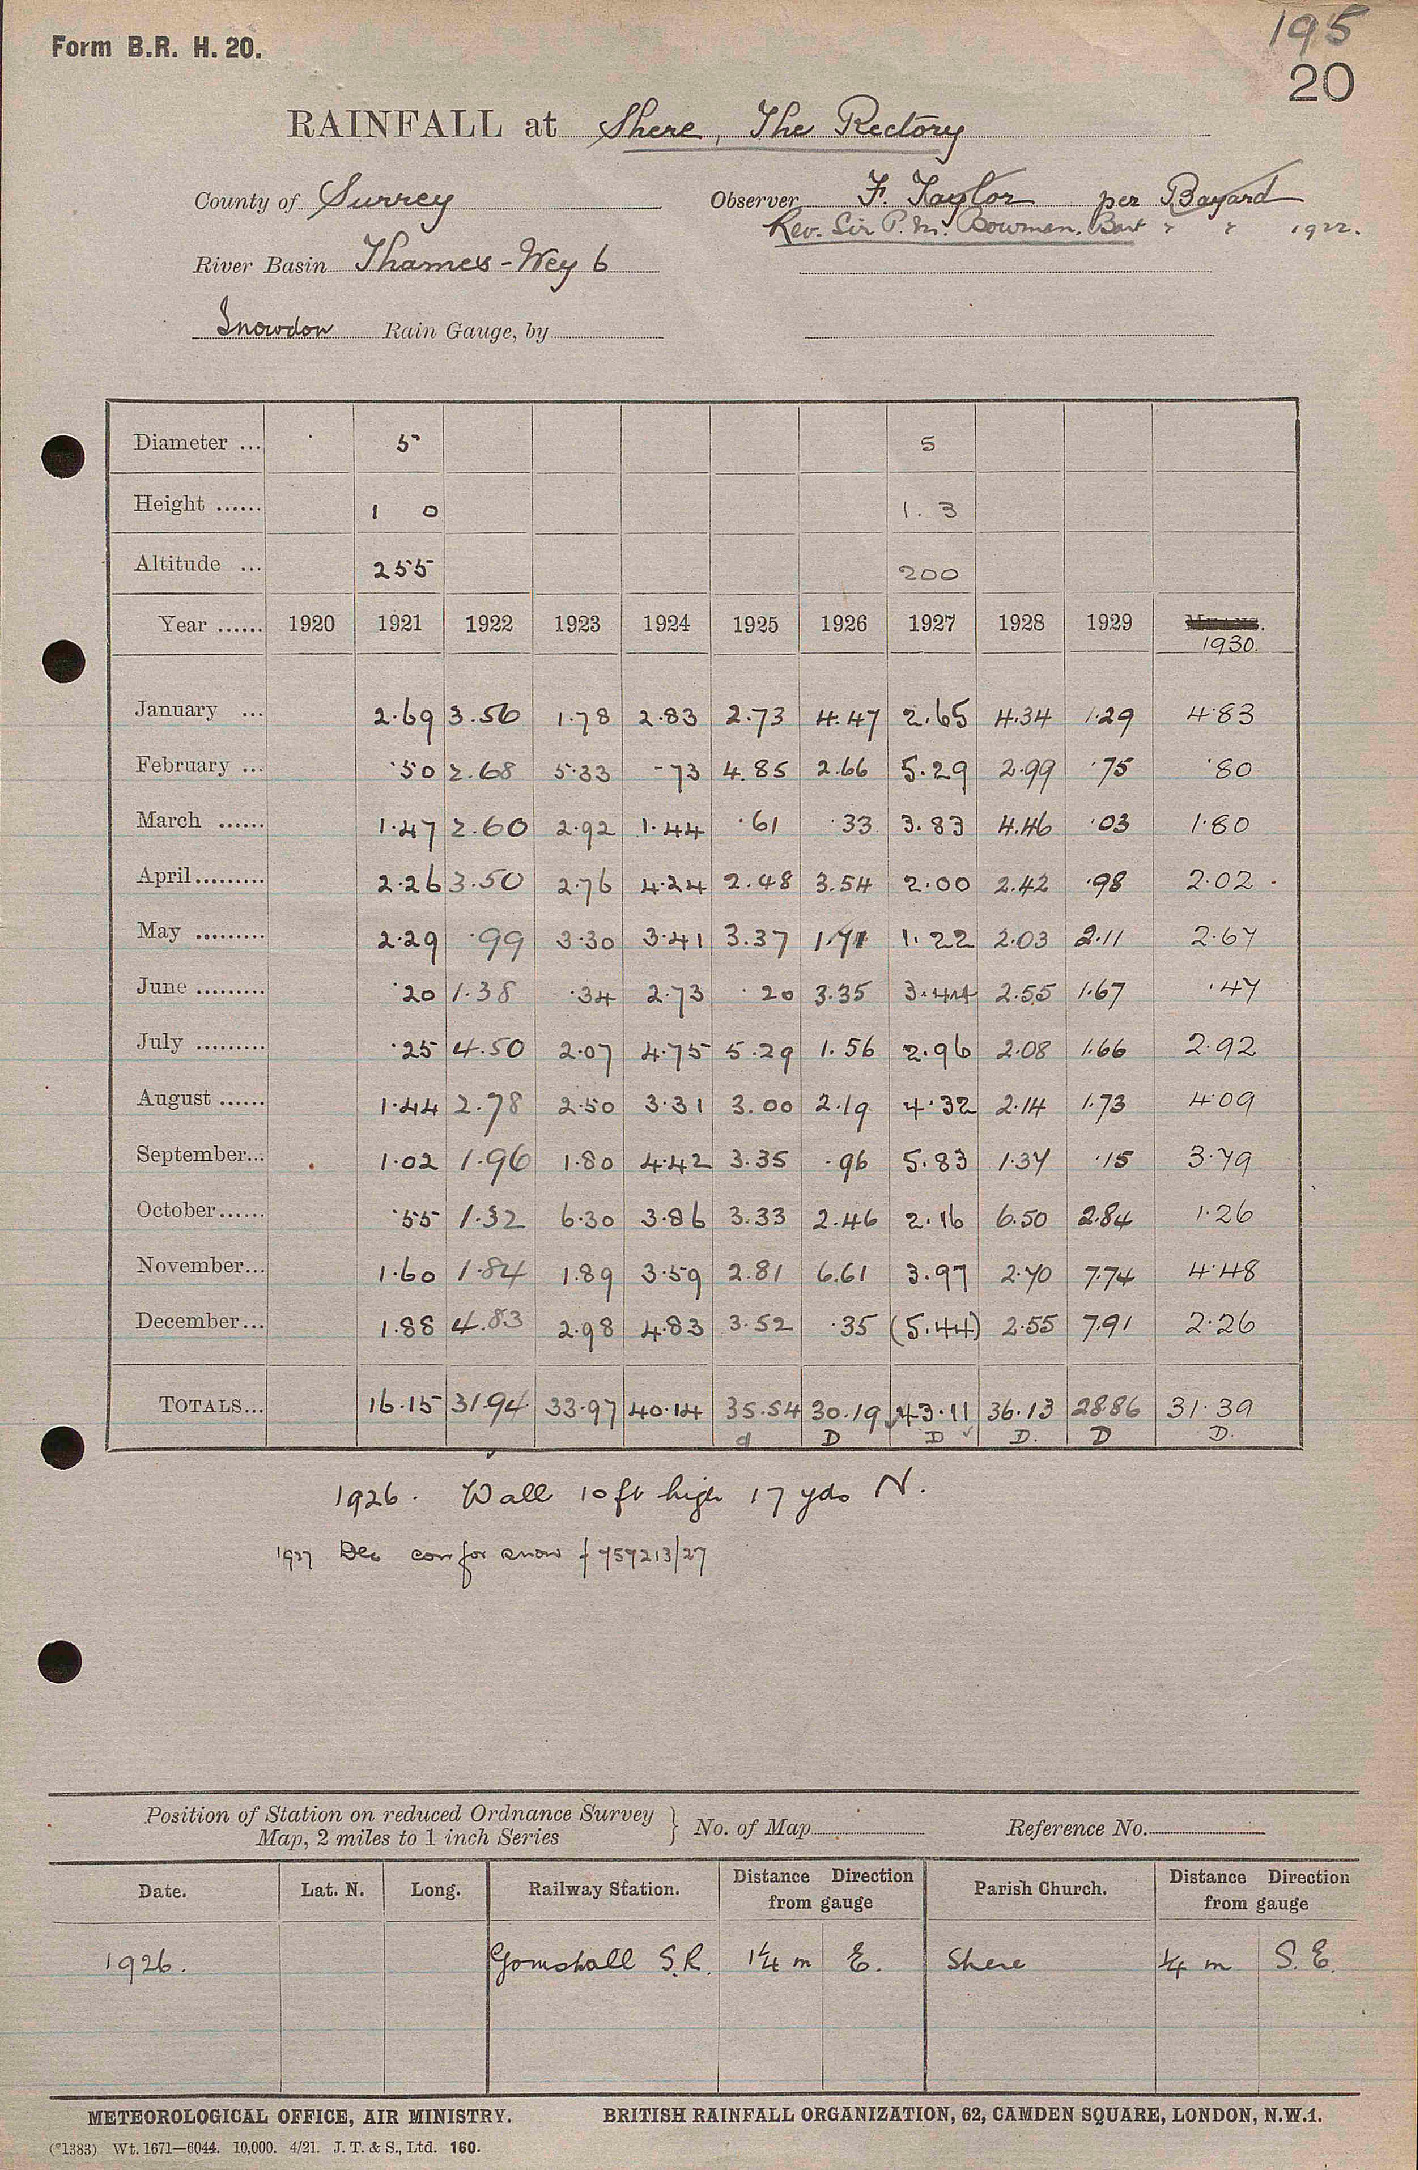 195
Form B.R. H. 20.
20
RAINFALL at Shere, The Rectory
County of Surrey Observer F. Taylor per Bayard
Rev. Sir P. M. Bowman. Bart " " 1922.
River Basin Thames - Wey 6
Snowdon Rain Gauge, by
Diameter ... 5 5
Height ...... 1 0 1. 3
Altitude ... 255 200
Year ...... 1920 1921 1922 1923 1924 1925 1926 1927 1928 1929 1930.
January ... 2.69 3.56 1.78 2.83 2.73 4.47 2.65 4.34 1.29 4.83
February ... .50 2.68 5.33 .73 4.85 2.66 5.29 2.99 .75 .80
March ...... 1.47 2.60 2.92 1.44 .61 .33 3.83 4.46 .03 1.80
April......... 2.26 3.50 2.76 4.24 2.48 3.54 2.00 2.42 .98 2.02
May ......... 2.29 .99 3.30 3.41 3.37 1.71 1.22 2.03 2.11 2.67
June ......... .20 1.38 .34 2.73 .20 3.35 3.44 2.55 1.67 .47
July ......... .25 4.50 2.07 4.75 5.29 1.56 2.96 2.08 1.66 2.92
August ...... 1.44 2.78 2.50 3.31 3.00 2.19 4.32 2.14 1.73 4.09
September... 1.02 1.96 1.80 4.42 3.35 .96 5.83 1.37 .15 3.79
October...... .55 1.32 6.30 3.86 3.33 2.46 2.16 6.50 2.84 1.26
November... 1.60 1.84 1.89 3.59 2.81 6.61 3.97 2.70 7.74 4.48
December... 1.88 4.83 2.98 4.83 3.52 .35 (5.44) 2.55 7.91 2.26
TOTALS... 16.15 31.94 33.97 40.14 35.54 30.19 43.11 36.13 28.86 31.39
d D D ✓ D. D D.
1926. Wall 10 ft high 17 yds N.
1927 Dec corr for snow f 757213/27
Position of Station on reduced Ordnance Survey
Map, 2 miles to 1 inch Series } No. of Map Reference No.
Date. Lat. N. Long. Railway Station. Distance Direction from gauge Parish Church. Distance Direction from gauge
1926. Gomshall S.R. 1¼ m E. Shere ¼ m S.E.
METEOROLOGICAL OFFICE, AIR MINISTRY. BRITISH RAINFALL ORGANIZATION, 62, CAMDEN SQUARE, LONDON, N.W.1.
(*1383) Wt. 1671—6044. 10,000. 4/21. J. T. & S., Ltd. 160.